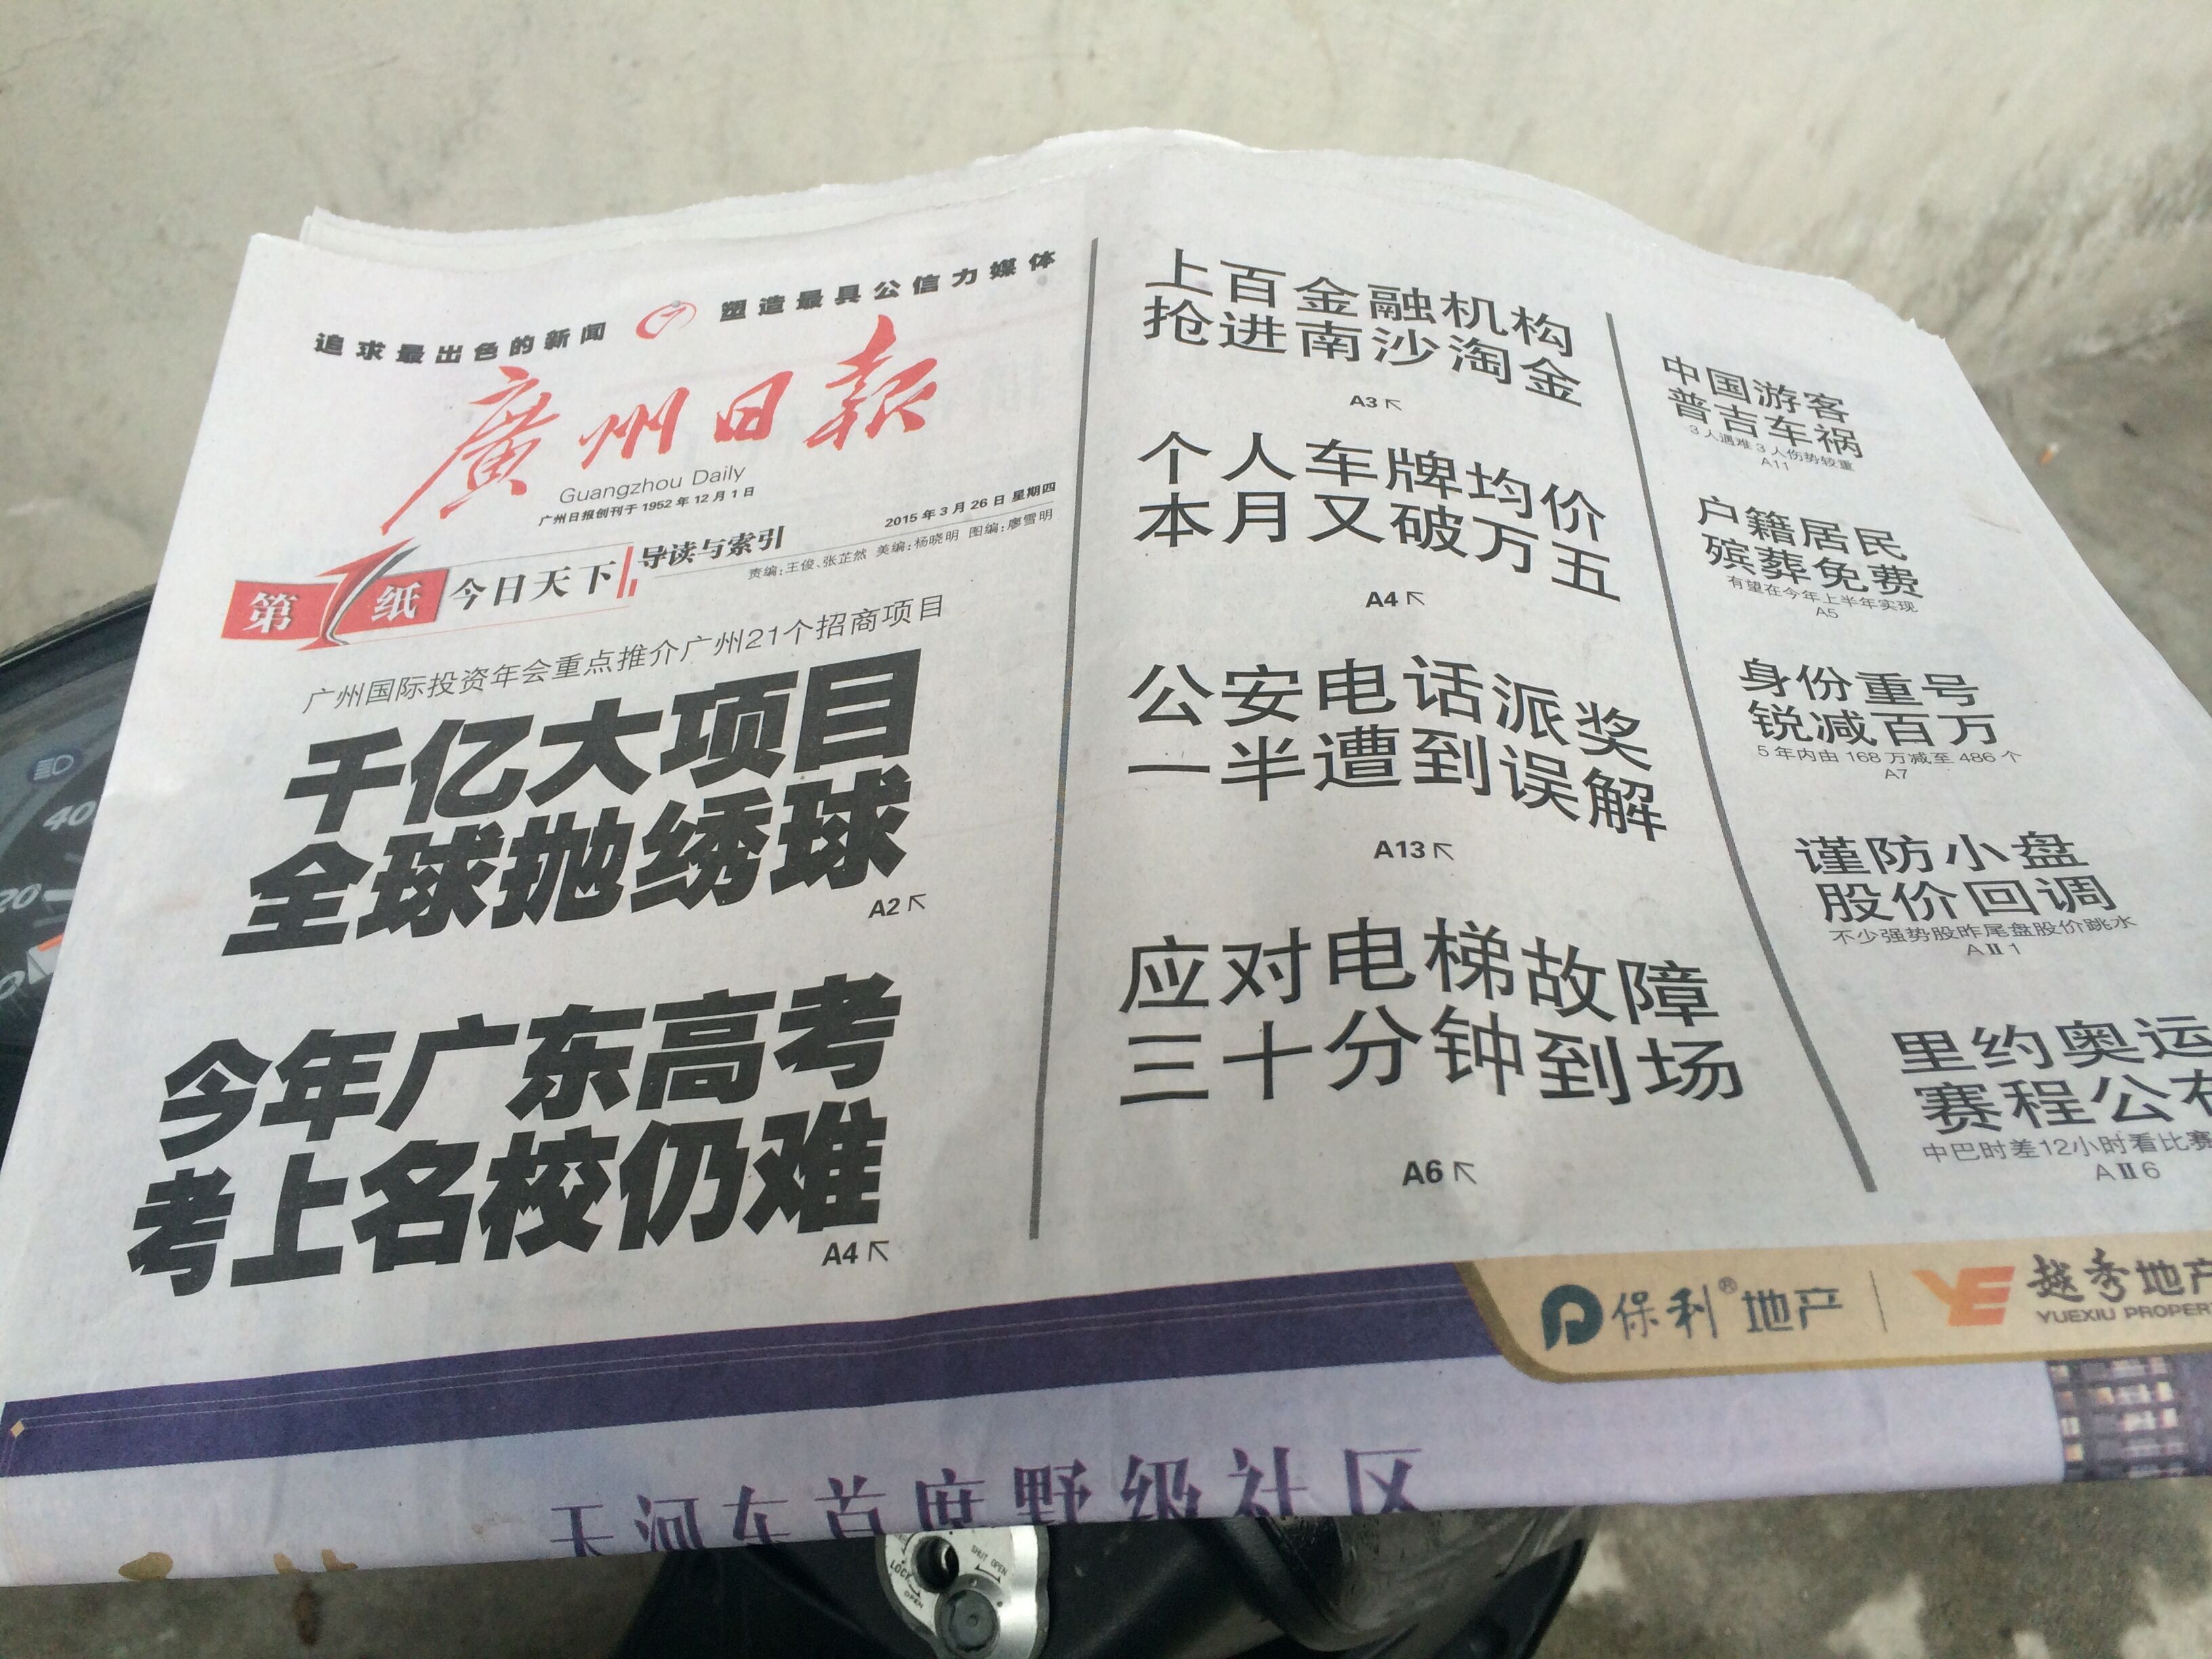 追求最出色的新闻 塑造最具公信力媒体
廣州日報
Guangzhou Daily
广州日报创刊于1952年12月1日
2015年3月26日 星期四
第1纸 今日天下 导读与索引
责编:王俊、张芷然 美编:杨晓明 图编:廖雪明
广州国际投资年会重点推介广州21个招商项目
千亿大项目
全球抛绣球
A2
今年广东高考
考上名校仍难
A4
上百金融机构
抢进南沙淘金
A3
个人车牌均价
本月又破万五
A4
公安电话派奖
一半遭到误解
A13
应对电梯故障
三十分钟到场
A6
中国游客
普吉车祸
3人遇难3人伤势较重
A11
户籍居民
殡葬免费
有望在今年上半年实现
A5
身份重号
锐减百万
5年内由168万减至486个
A7
谨防小盘
股价回调
不少强势股昨尾盘股价跳水
AⅡ1
里约奥运
赛程公布
中巴时差12小时看比赛
AⅡ6
保利®地产
越秀地产
YUEXIU PROPER
天河东首席墅级社区
40
20
0
LOCK
OPEN
SHUT OPEN